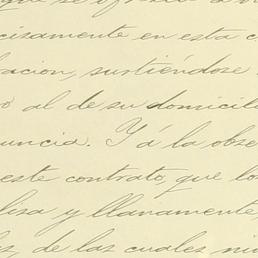 que se
cisamente en esta c
racion, surtiéndose
o al de su domicilio
uncia. Y á la obse
este contrato, que lo
liza y llanamente,
de las cuales